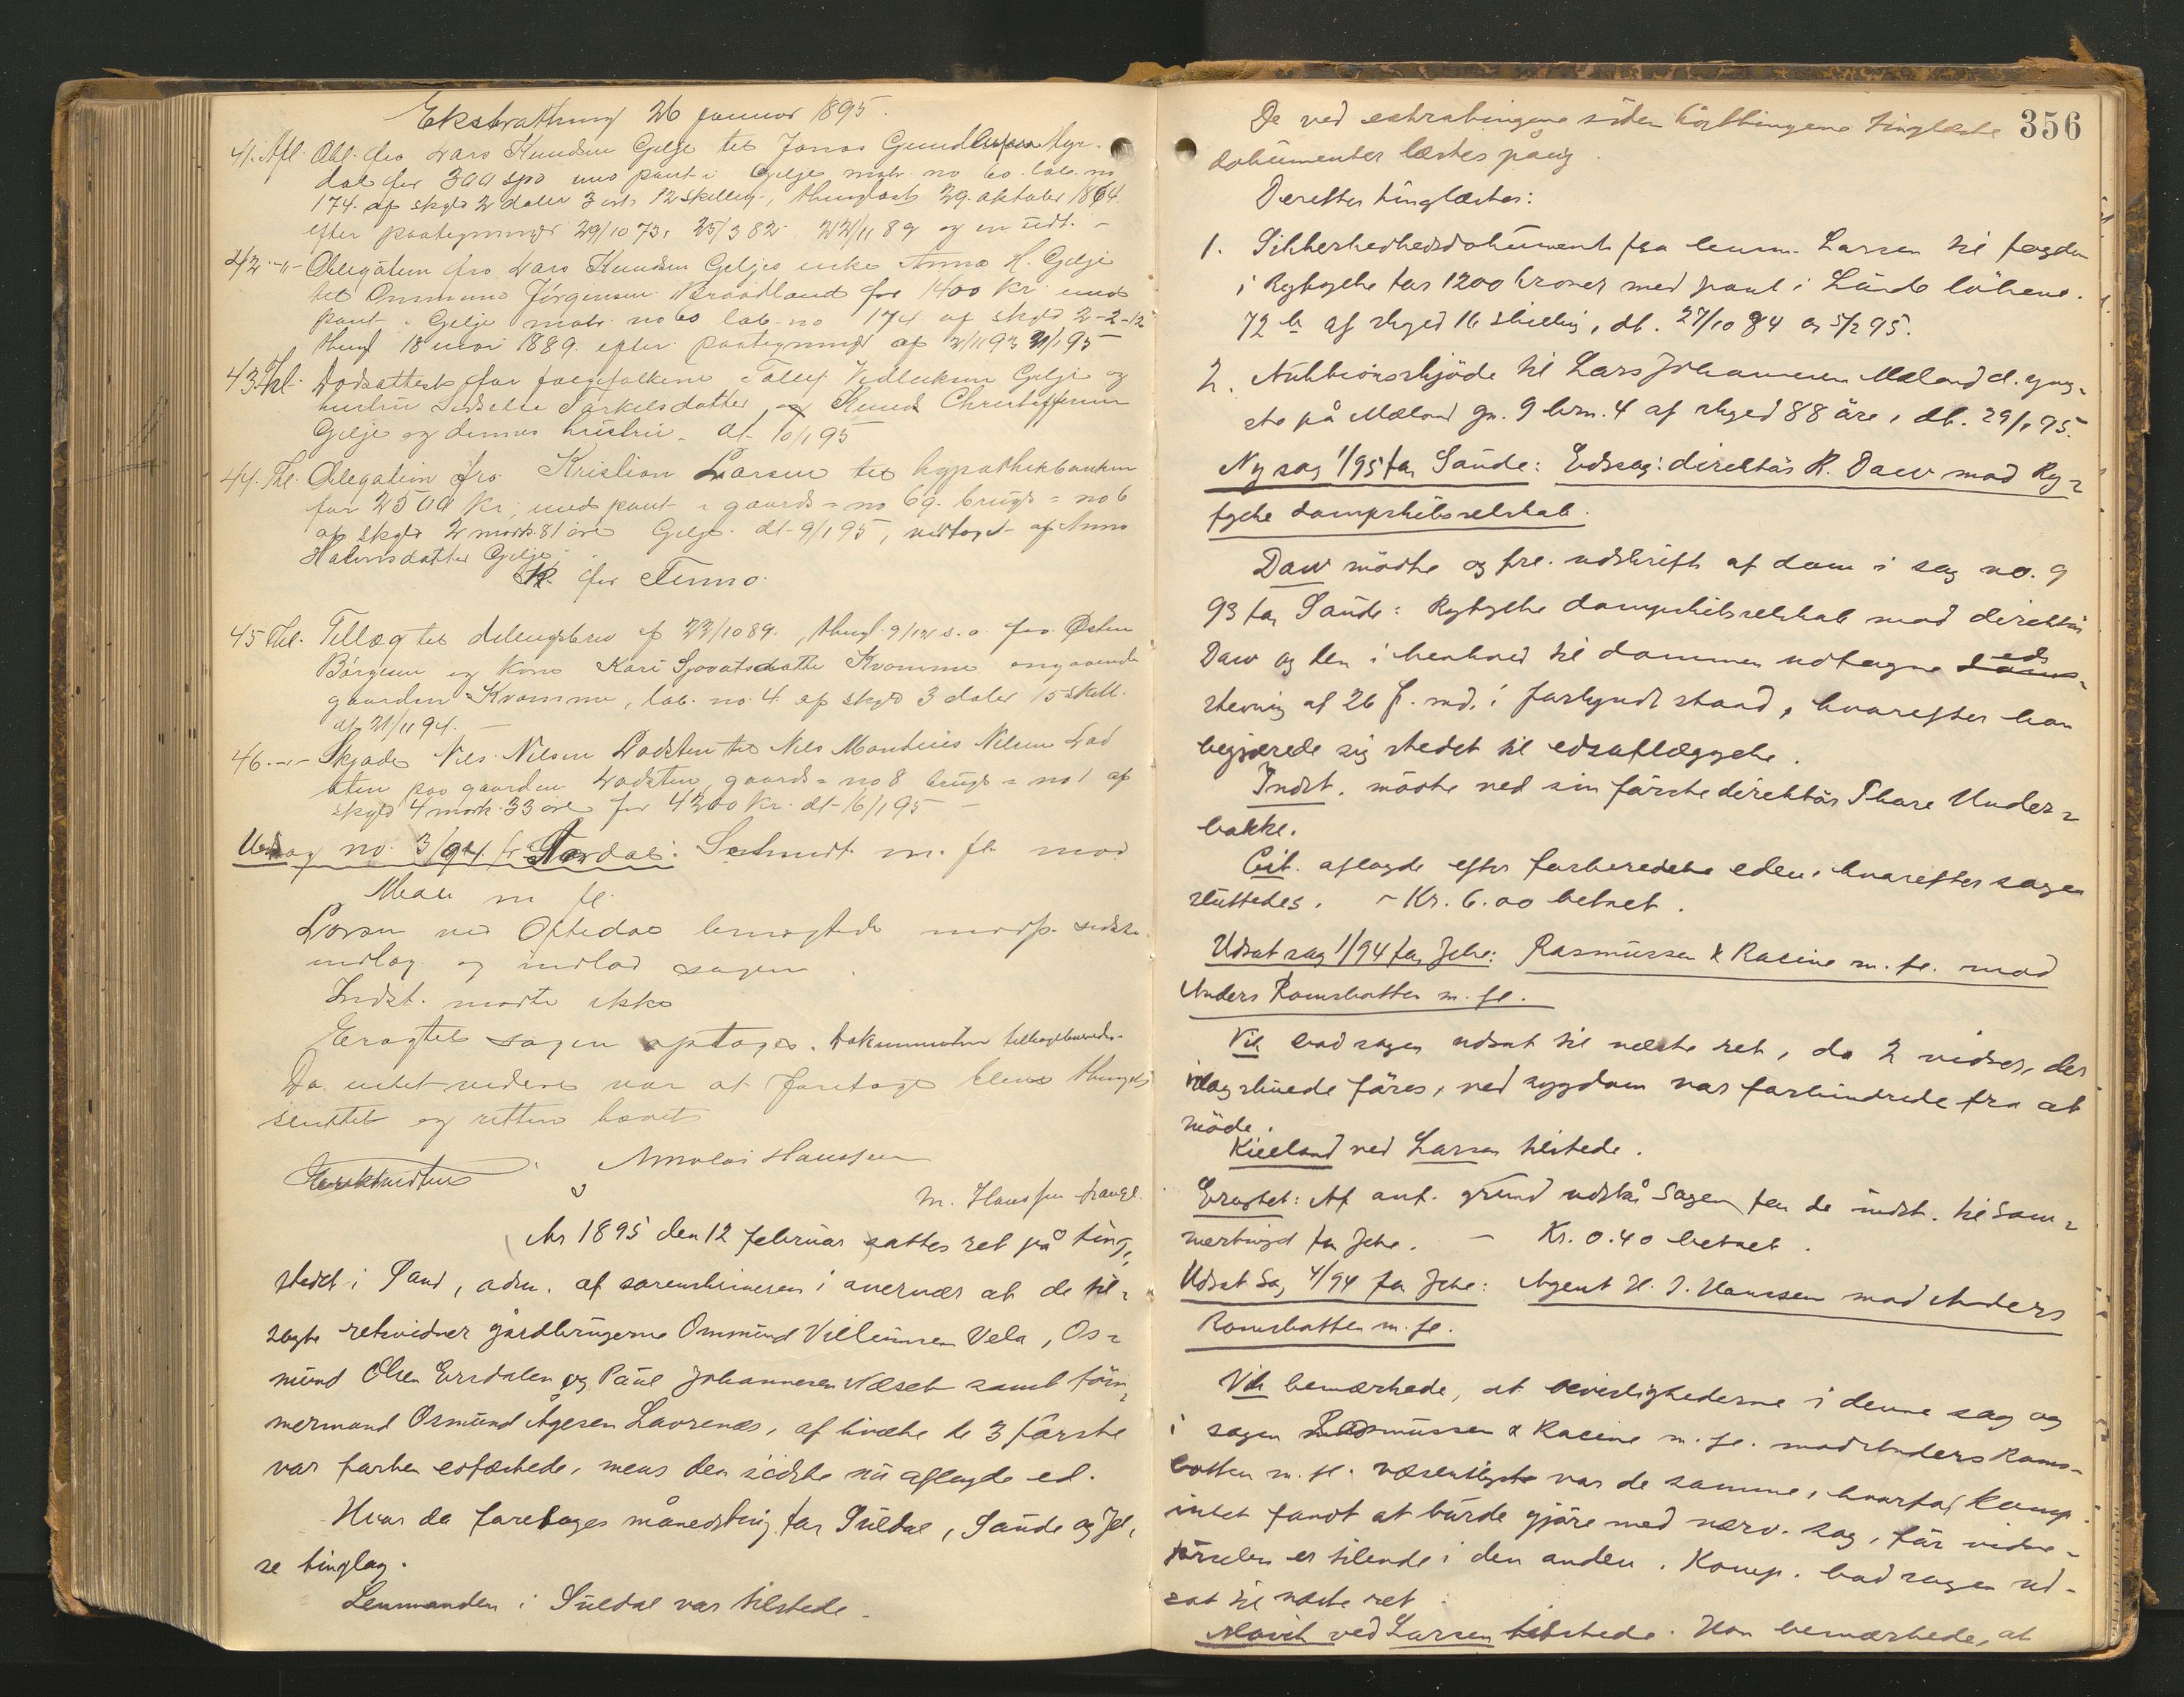 Ekstrathing 26 januar 1895.
41. Afl. Obl. fra Lars Knudsen Gilje til Jonas Gundersen Myr-
dal for 300 spd mod pant i Gilje matr. no 60 løb. no
174. af skyld 2 daler 3 ort 12 skilling, thinglæst 29. oktober 1864.
efter paategninger 29/10 73, 25/3 82 22/11 89 og en udt. -
42. -"- Obligation fra Lars Knudsen Giljes enke Anna H. Gilje
til Ommund Jörgensen Braadland for 1400 kr. mod
pant i Gilje matr. no 60 løb. no 174 af skyld 2-2-12
thingl 18 mai 1889. efter paategninger af 2/11 93 21/1 95 -
43. Thl. Dødsattest for folgefolkene Tollef Vedleksen Gilje og
hustru Sidselse Torkelsdatter, og Knud Christoffersen
Gilje og dennes hustru. dt. 10/1 95
44. Thl. Obligation fra Kristian Larsen til hypothekbanken
for 2500 kr, mod pant i gaards = no 69. brugs = no 6
af skyld 2 mark 81 øre Gilje. dt. 9/1 95, vedtaget af Anna
Halvorsdatter Gilje.
K. for Finnø.
45 Thl. Tillæg til delingsbrev af 22/10 89., thingl. 9/12 s. a. fra Østen
Børgesen og kone Kari Sjovatsdatter Kvamme angaaende
gaarden Kvamme, løb. no. 4 af skyld 3 daler 15 skill.
af 21/11 94. -
46. -"- Skjøde Nils Nilsen Lodsten til Nils Montinius Nilsen Lod
sten paa gaarden Lodsten gaards = no 8 brugs = no 1 af
skyld 4 mark 33 øre for 4200 kr. dt. 16/1 95 -
Udsag no. 3/94 fr Aardal: Schmidt m. fl. mod
m fl.
Larsen ved Oftedal modp. sidste
indlæg og indlod sagen.
Indst. mødte ikke
Eragtet sagen optages. Dokumenterne tilbageleveredes.
Da intet videre var at foretage blev thinget
sluttet og retten hævet
Nicolai Hanssen
M. Hanssen
År 1895 den 12 februar sattes ret på ting-
stedet i Sand, adm. af sorenskriveren i overvær af de til-
sagte retsvidner gårdbrugerne Ommund Villumsen Vela, Os-
mund Olsen Ersdalen og Paul Johannesen Næset samt töm-
mermand Osmund Ågesen Lavrenæs, af hvilke de 3 förste
var forhen edfæstede, mens den sidste nu aflagde ed.
Hvor da foretoges månedsting for Suldal, Saude og Jel-
se tinglag.
Lensmanden i Suldal var tilstede.
356
De ved extratingene siden hösttingene tinglæste
dokumenter læstes påny.
Derefter tinglæstes:
1. Sikkerhedsdokument fra lensm. Larsen til fogden
i Ryfylke for 1200 kroner med pant i Lunde löbenr.
72 b af skyld 16 skilling, dt. 27/10 84 og 5/2 95.
2. Auktionsskjöde til Lars Johannesen Mæland d. yng-
ste på Mæland gn. 9 brn. 4 af skyld 88 öre, dt. 29/1 95.
Ny sag 1/95 for Saude: Edssag: direktör R. Daw mod Ry-
fylke dampskibsselskab.
Daw mödte og fre. udskrift af dom i sag no. 9
93 for Saude: Ryfylke dampskibsselskab mod direktör
Daw og den i henhold til dommen udtagne eds
stevning af 26 f. md. i forkyndt stand, hvorefter han
begjærede sig stedet til edsaflæggelse.
Indst. mödte ved sin förste direktör Thore Under-
bakke.
Cit. aflagde efter forberedelse eden, hvorefter sagen
sluttedes. - Kr. 6.00 betalt.
Udsat sag 1/94 for Jelse: Rasmussen & Racine m. fl. mod
Anders Romsbotten m. fl.
Vik bad sagen udsat til næste ret, da 2 vidner, der
idag skulde föres, ved sygdom var forhindrede fra at
möde.
Kielland ved Larsen tilstede.
Eragtet: Af anf. grund udstår sagen for de indst. til som-
mertinget for Jelse. - Kr. 0.40 betalt.
Udsat sag 4/94 for Jelse: Agent H. J. Hanssen mod Anders
Romsbotten m. fl.
Vik bemærkede, at bevislighederne i denne sag og
i sagen Rasmussen & Racine m. fl. mod Anders Roms-
botten m. fl. væsentligste var de samme, hvorfor komp.
intet fandt at burde gjöre med nærv. sag, för vidne-
förselen er tilende i den anden. Komp. bad sagen ud-
sat til næste ret.
ved Larsen tilstede. Han bemærkede, at